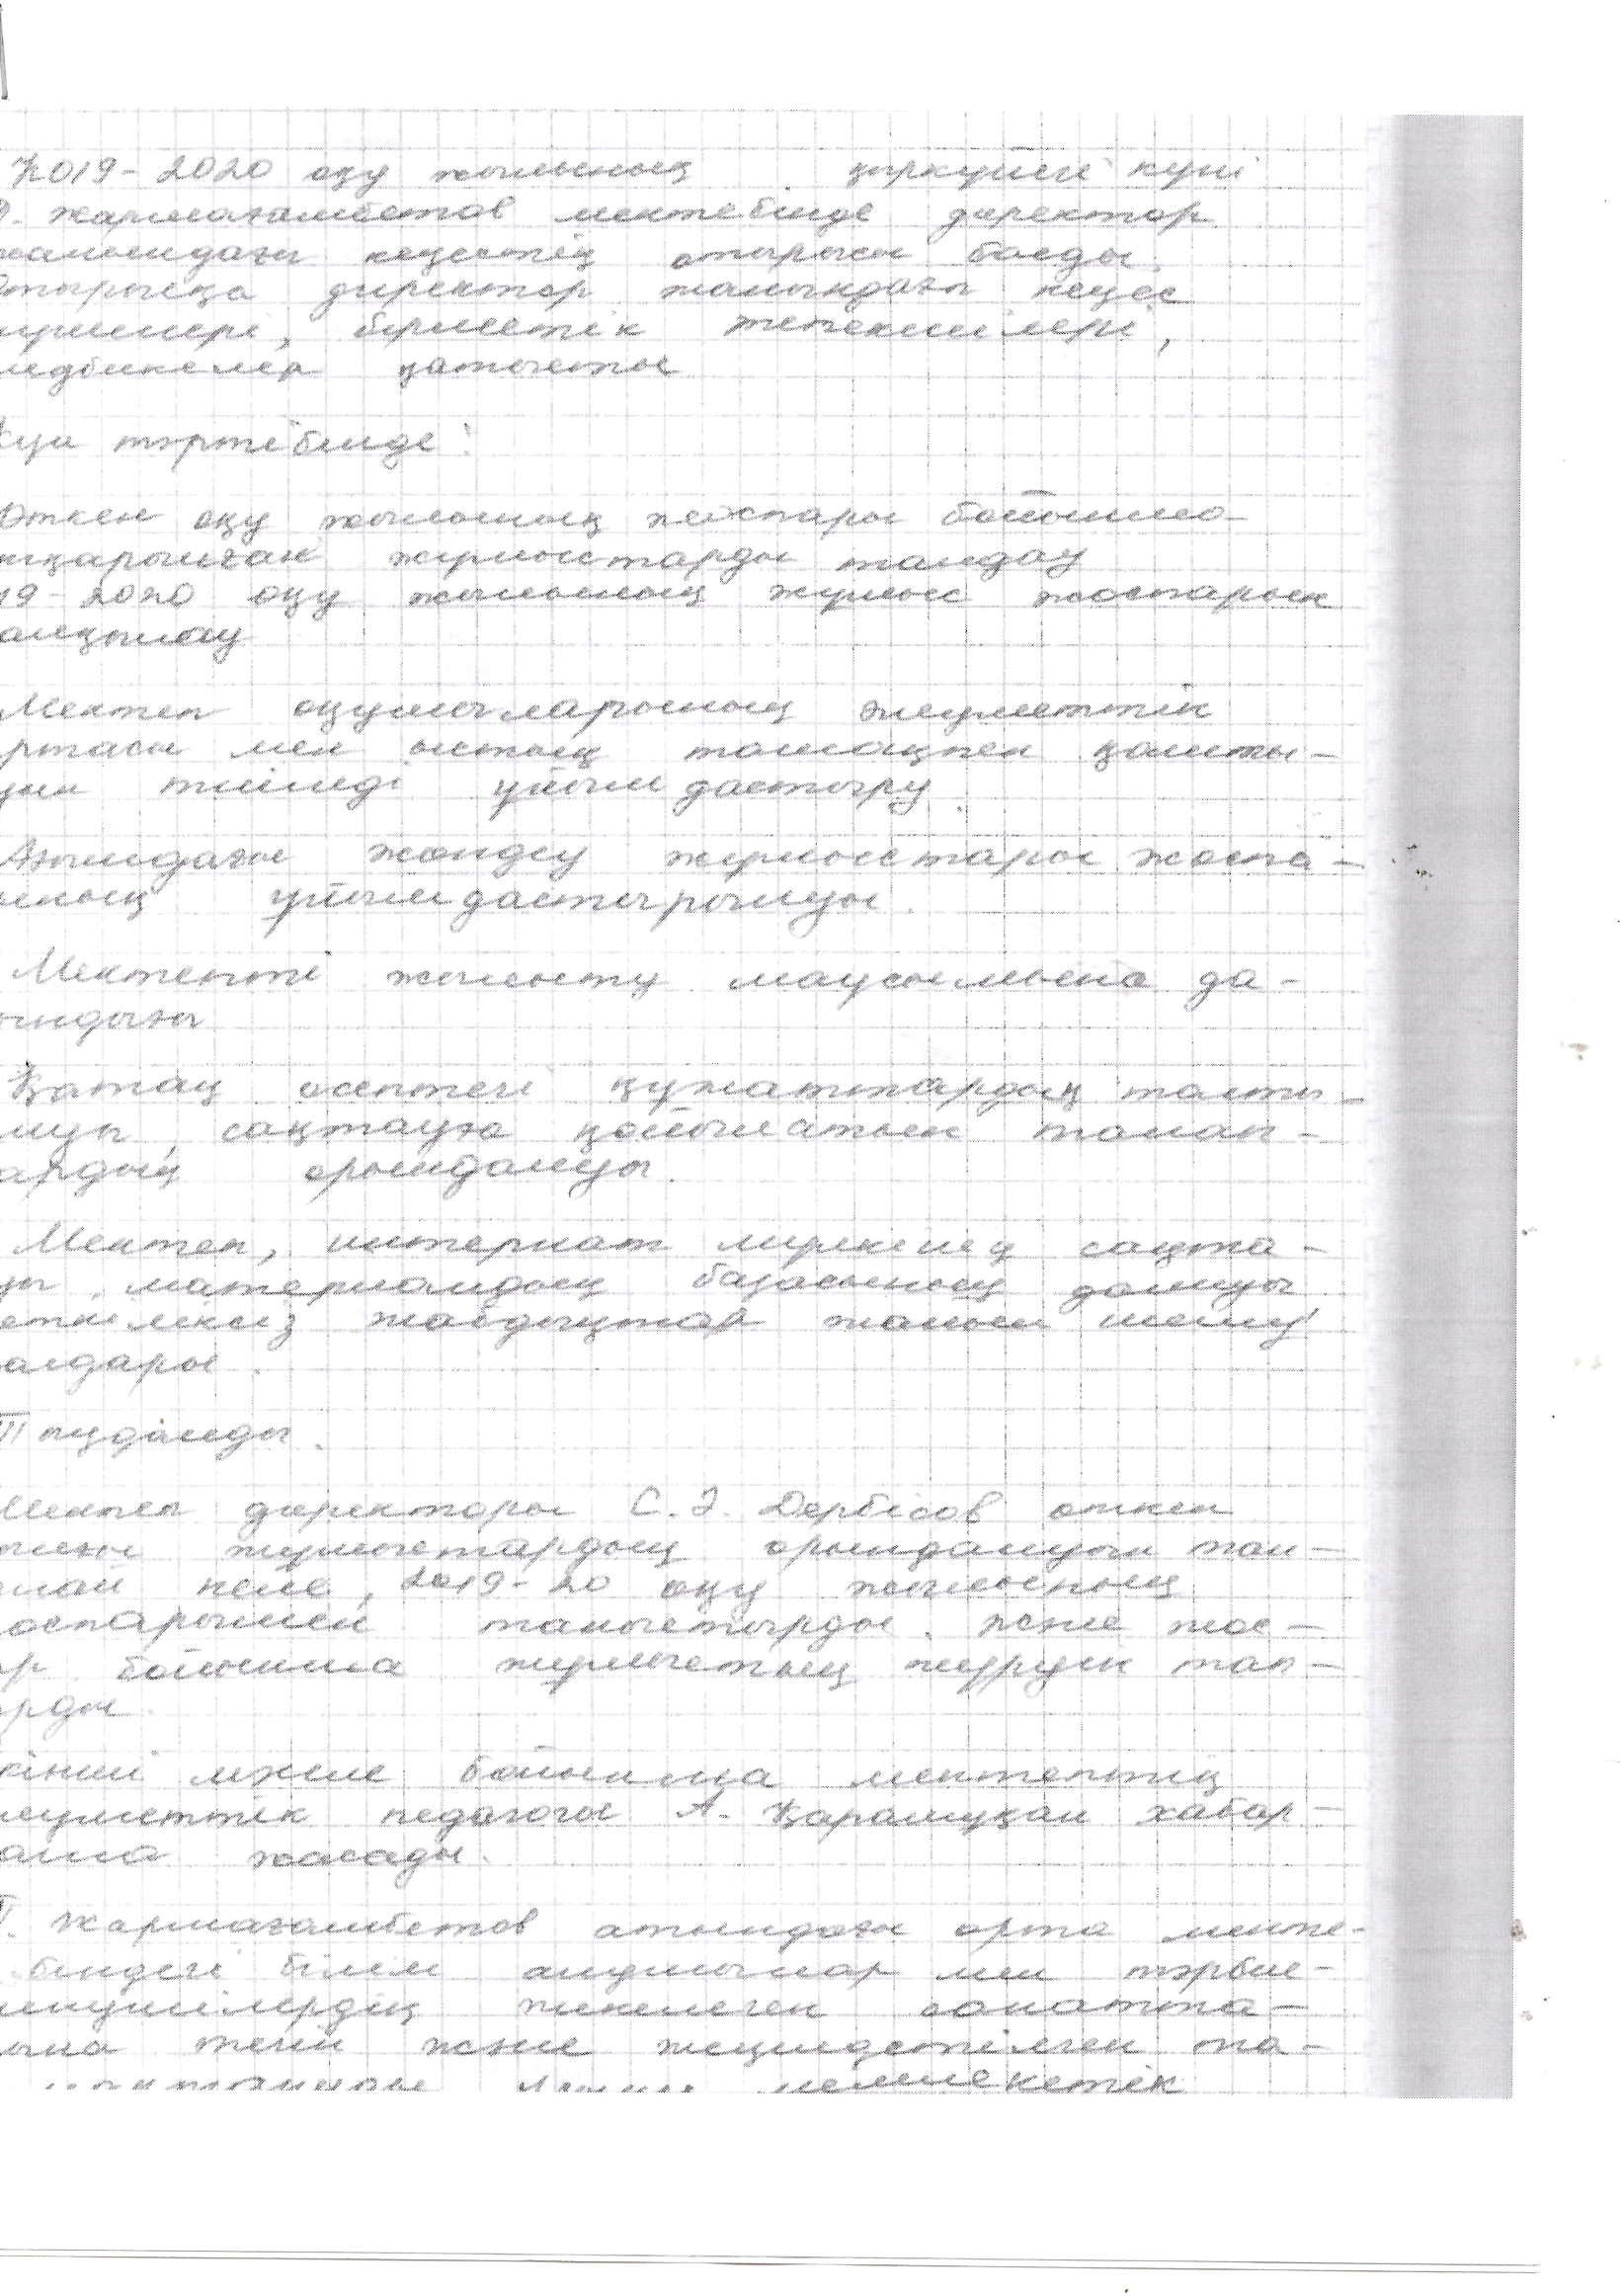 2019-2020 оқу жылының қыркүйегі күні
Жармағамбетов мектебінде директор
жанындағы кеңестің отырысы болды.
Отырысқа директор жанындағы кеңес
мүшелері, бірлестік жетекшілері,
медбикелер қатысты
Күн тәртібінде:
Өткен оқу жылының жоспары бойынша
атқарылған жұмыстарды талдау
19-2020 оқу жылының жұмыс жоспарын
талқылау
Мектеп оқушыларының әлеуметтік
ортасы мен ыстық тамақпен қамты-
уын тиімді ұйымдастыру.
Ағымдағы жөндеу жұмыстары жоспа-
рының ұйымдастырылуы.
Мектепті жылыту маусымына да-
йындығы
Қатаң есептегі құжаттардың толты-
рылуы, сақтауға қойылатын талап-
тардың орындалуы.
Мектеп, интернат мүлкінің сақта-
луы, материалдық базасының дамуы
жеткіліксіз жағдайлар шешу
жолдары.
Тыңдалды.
Мектеп директоры С. Ә. Дербісов өткен
жылғы жұмыстардың орындалуын тал-
дай келе, 2019-20 оқу жылының
жоспарымен таныстырды. және жос-
пар бойынша жұмыстың жүруін тап-
сырды.
Екінші мәселе бойынша мектептің
әлеуметтік педагогы А. хабар-
лама жасады.
Жармағамбетов атындағы орта мекте-
біндегі білім алушылар мен тәрбие-
ленушілердің жекелеген санатта-
рына тегін және жеңілдетілген та-
мемлекетік